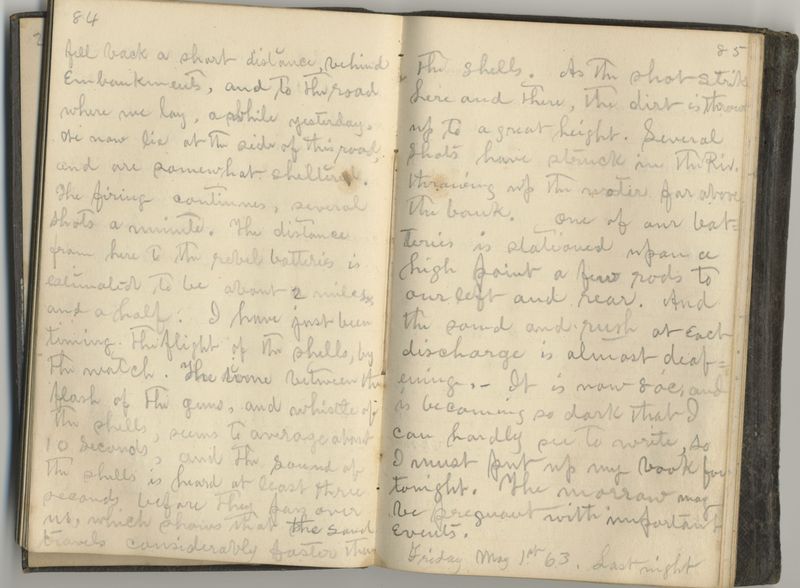 84
fell back a short distance, behind
Embankments, and to the road
where we lay, awhile yesterday.
We now lie at the side of this road,
and are somewhat sheltered.
The firing continues, several
shots a minute. The distance
from here to the rebel batteries is
estimated to be about 2 miles
and a half. I have just been
timing the flight of the shells, by
the watch. The time between the
flash of the guns, and whistle of
the shells, seems to average about
10 seconds, and the sound of
the shells is heard at least three
seconds before they pass over
us, which shows that the sound
travels considerably faster than
85
the shells. As the shot strik
here and there, the dirt is thrown
up to a great height. Several
shots have struck in the Riv.
throwing up the water far above
the bank. One of our bat=
teries is stationed upon a
high point a few rods to
our left and rear. And
the sound and rush at each
discharge is almost deaf=
ening.- It is now 8 oc, and
is becoming so dark that I
can hardly see to write, so
I must put up my book for
tonight. The morrow may
be pregnant with important
events.
Friday May 1st 63. Last night